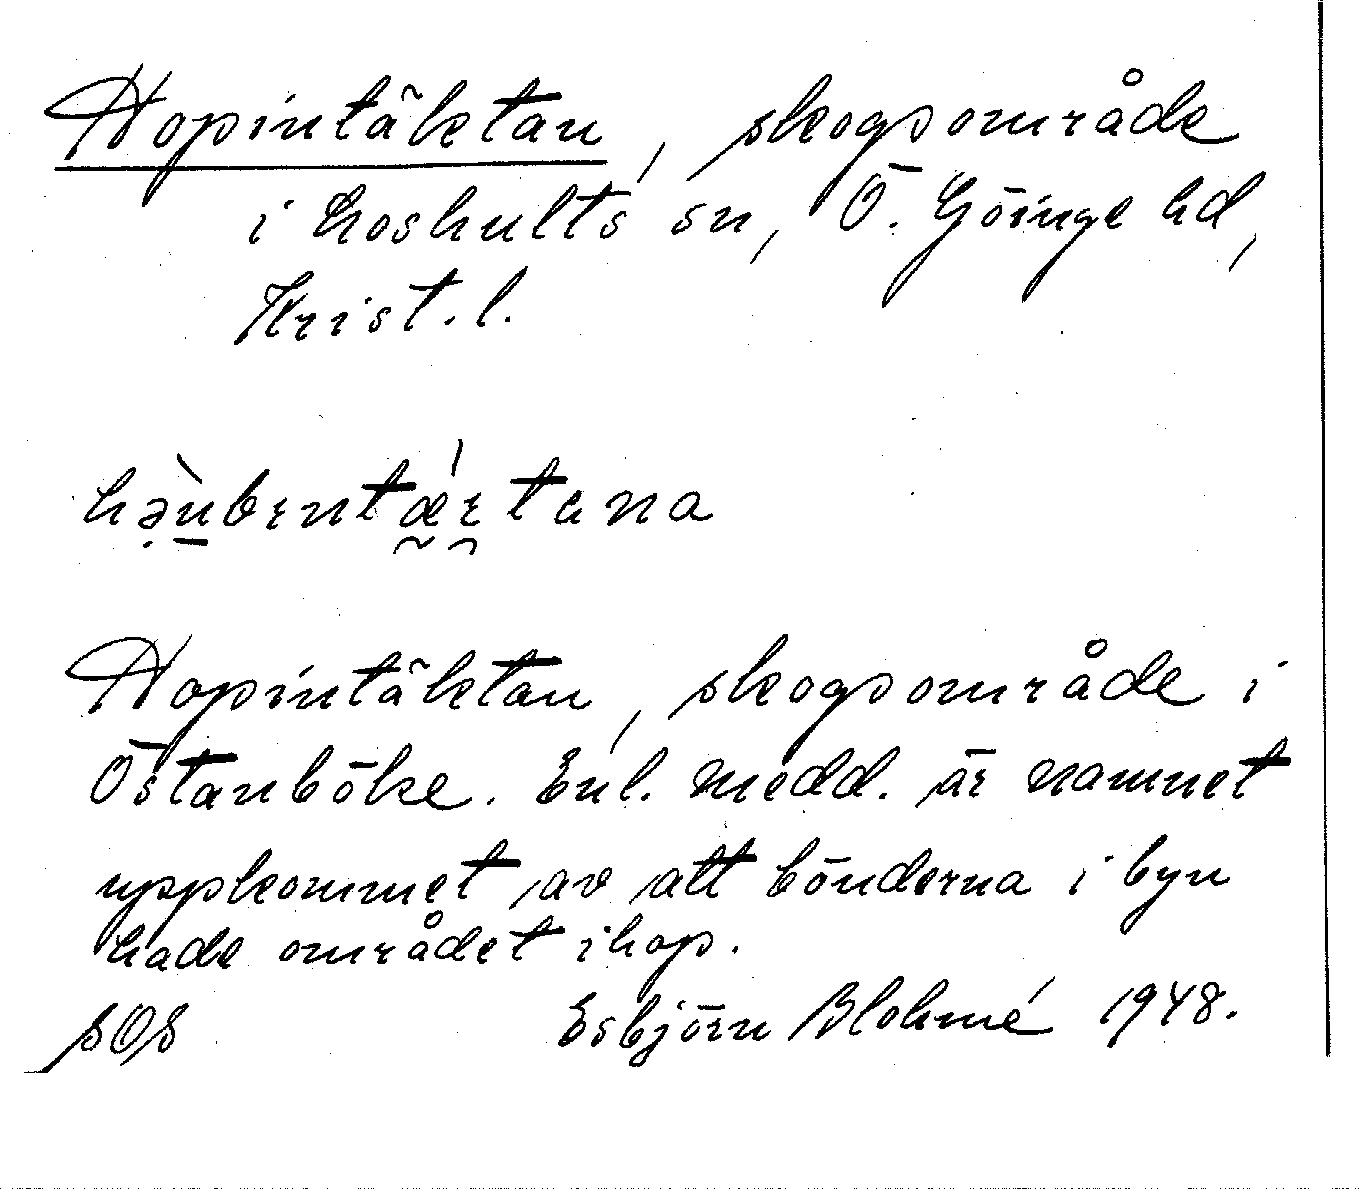 Hopintäktan, skogsområde
i Loshults sn, Ö. Göinge hd,
Krist. l.
Hopintäktan, skogsområde i
Östanböke. Enl. medd. är namnet
uppkommet av att bönderna i byn
hade området ihop.
SOS Esbjörn Blohmé 1948.